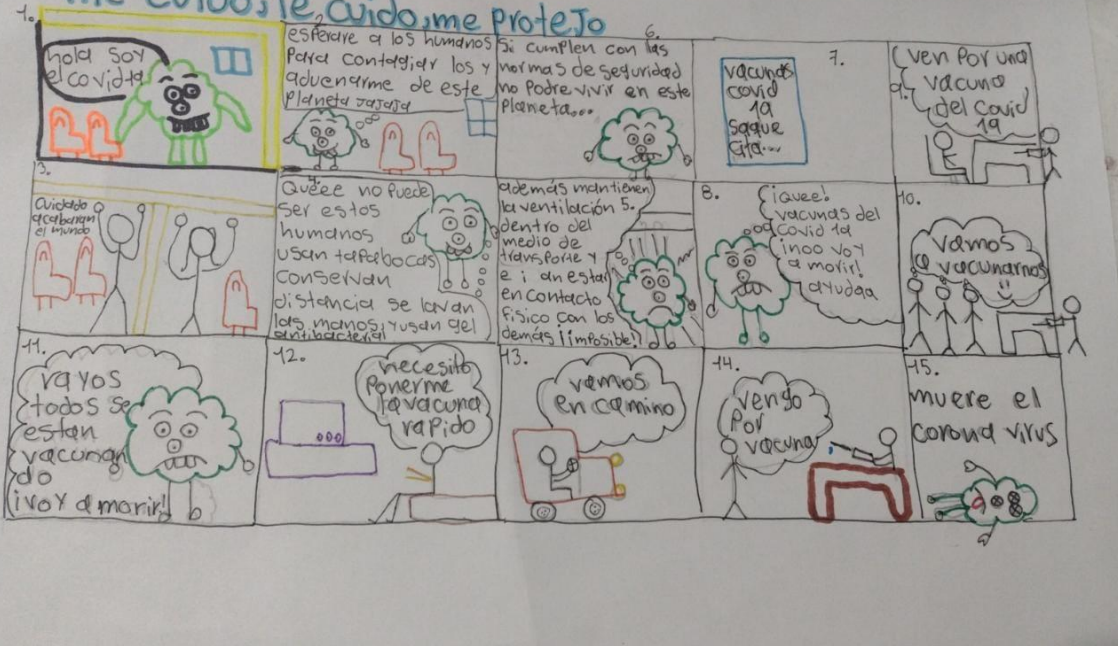 me cuido, te cuido, me protejo
1.
hola soy
el covid 19
2
esperare a los humanos
para contagiar los y
adueñarme de este
planeta jajaja
6.
Si cumplen con las
normas de seguridad
no podre vivir en este
planeta...
7.
vacunas
covid
19
saque
cita...
9.
ven por una
vacuna
del covid
19
3.
cuidado
acabaran
el mundo
4.
Quéee no puede
ser estos
humanos
usan tapabocas
conservan
distancia se lavan
las manos, y usan gel
antibacterial
5.
además mantienen
la ventilación
dentro del
medio de
transporte y
en contacto
fisico con los
demás ¡imposible!
8.
¡quee!
vacunas del
covid 19
¡noo voy
a morir!
ayudaa
10.
vamos
a vacunarnos
11.
rayos
todos se
estan
vacunan
do
¡voy a morir!
12.
necesito
ponerme
la vacuna
rapido
13.
vamos
en camino
14.
vengo
por
vacuna
15.
muere el
corona virus